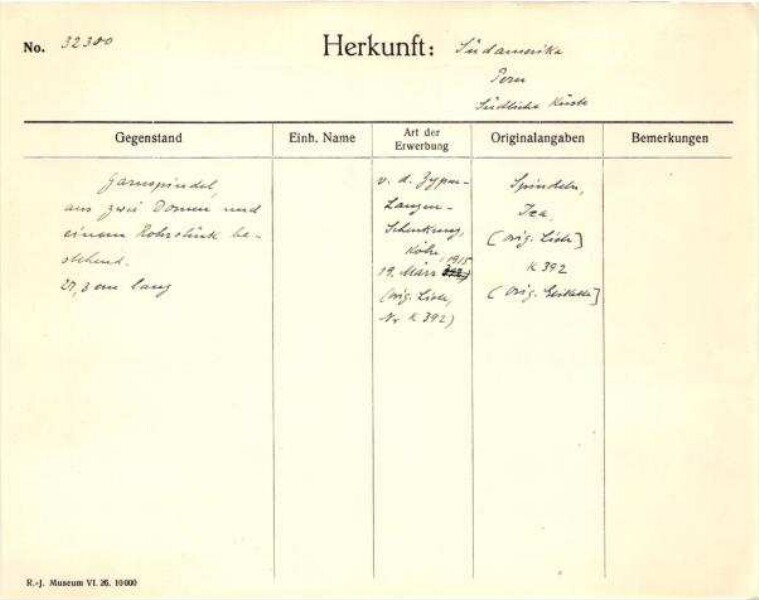 No. 32300
Herkunft: Südamerika
Peru
Südliche Küste
Gegenstand
Einh. Name
Art der
Erwerbung
Originalangaben
Bemerkungen
Garnspindel,
aus zwei Dornen und
einem Rohrstück be-
stehend.
27,3 cm lang
v. d. Zypen-
Langen-
Schenkung,
Köln,
19. März 1915
(orig. Liste,
Nr K 392)
Spindeln,
Ica.
(orig. Liste]
K 392
(orig. Etikette]
R.-J. Museum VI. 26. 10000